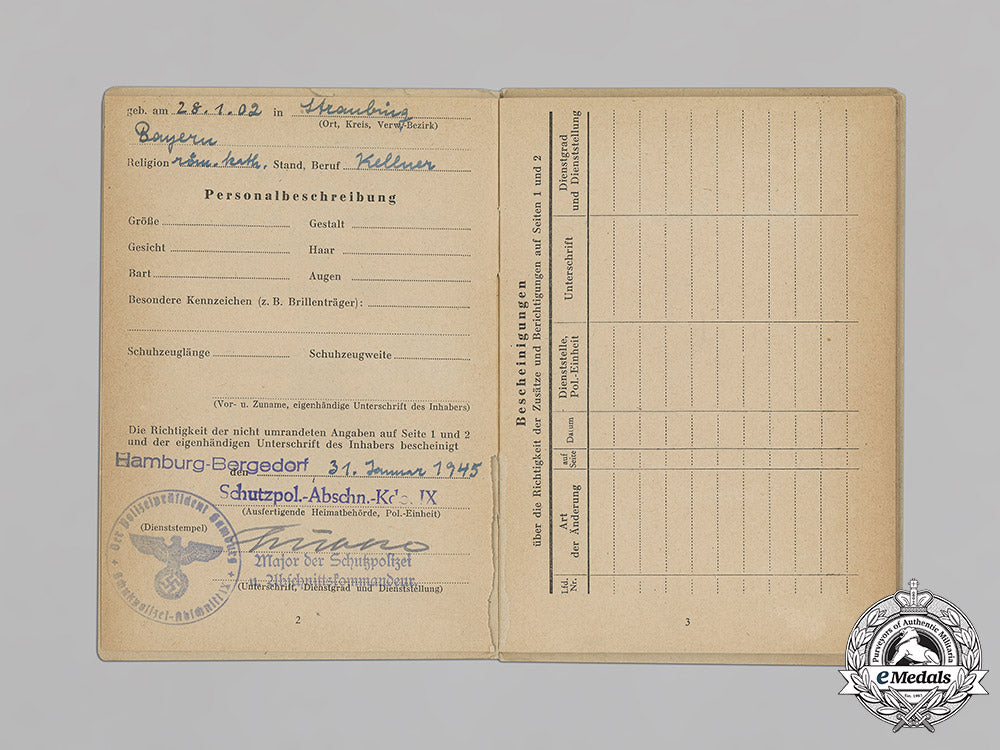 geb. am 28.1.02 in Straubing
(Ort, Kreis, Verw.-Bezirk)
Bayern
Religion röm. kath. Stand, Beruf Kellner
Personalbeschreibung
Größe Gestalt
Gesicht Haar
Bart Augen
Besondere Kennzeichen (z. B. Brillenträger):
Schuhzeuglänge Schuhzeugweite
(Vor- u. Zuname, eigenhändige Unterschrift des Inhabers)
Die Richtigkeit der nicht umrandeten Angaben auf Seite 1 und 2
und der eigenhändigen Unterschrift des Inhabers bescheinigt
Hamburg-Bergedorf, den 31. Januar 1945
Schutzpol.-Abschn.-Kdo. IX
(Ausfertigende Heimatbehörde, Pol.-Einheit)
(Dienststempel)
Der Polizeipräsident Hamburg
Schutzpolizei-Abschnitt IX
Major der Schutzpolizei
u. Abschnittskommandeur.
(Unterschrift, Dienstgrad und Dienststellung)
2
Bescheinigungen
über die Richtigkeit der Zusätze und Berichtigungen auf Seiten 1 und 2
Lfd. Nr.
Art der Änderung
auf Seite
Datum
Dienststelle, Pol.-Einheit
Unterschrift
Dienstgrad und Dienststellung
3
Purveyors of Authentic Militaria
eMedals